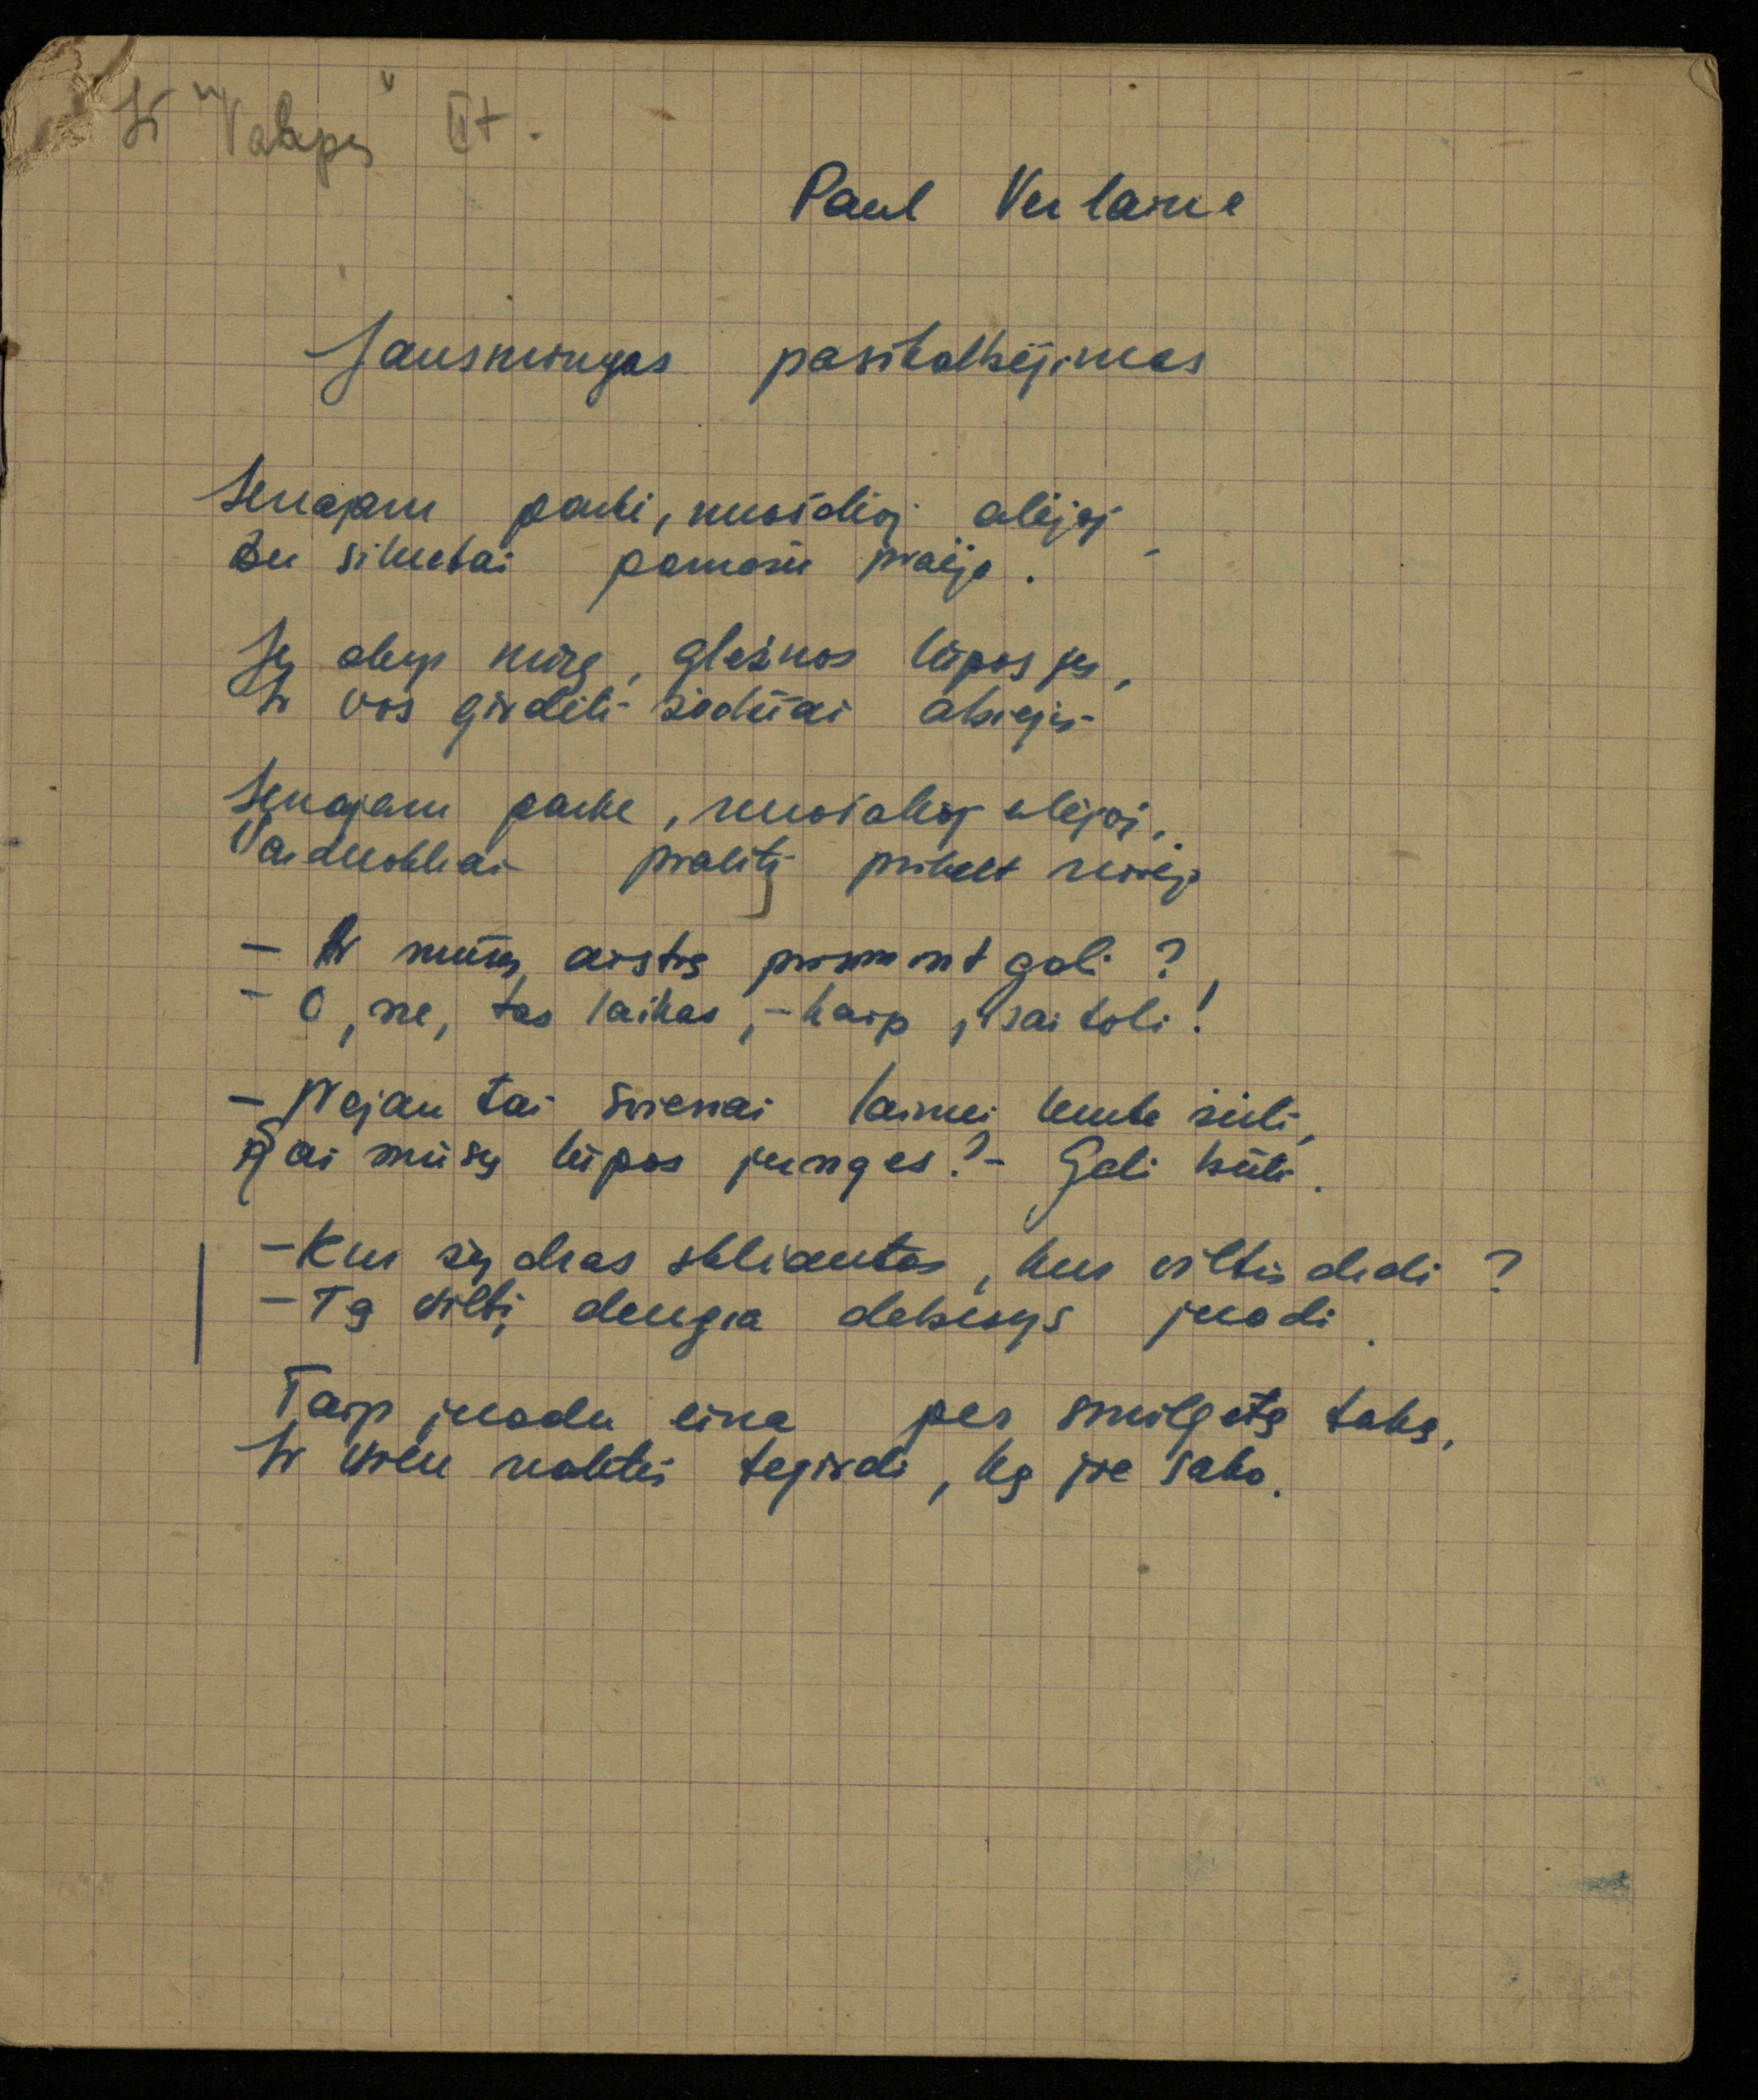 Ir "Vakarų" II t.
Paul Verlaine
Jausmingas pasikalbėjimas
Senajam parke, nuošalioj alėjoj,
Du siluetai pamažu praėjo.
Jų akys mirę, gležnos lūpos jų,
Ir vos girdėti žodžiai abiejų
Senajam parke, nuošalioj alėjoj,
Vaiduokliai praeitį prikelt norėjo
– Ar mūsų aistrą primint gali?
– O, ne, tas laikas, – kaip jisai toli!
– Nejau tai šviesiai laimei lemta žūti,
Kai mūsų lūpos jungės? – Gali būti.
– Kur žydras skliautas, kur viltis didi?
– Tą viltį dengia debesys juodi.
Taip juodu eina per smilgotą taką,
Ir vien naktis tegirdi, ką jie sako.